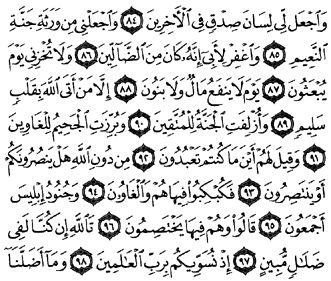 وَٱجْعَل لِّي لِسَانَ صِدْقٍ فِي ٱلْأٓخِرِينَ ٨٤ وَٱجْعَلْنِي مِن وَرَثَةِ جَنَّةِ
ٱلنَّعِيمِ ٨٥ وَٱغْفِرْ لِأَبِيٓ إِنَّهُۥ كَانَ مِنَ ٱلضَّآلِّينَ ٨٦ وَلَا تُخْزِنِي يَوْمَ
يُبْعَثُونَ ٨٧ يَوْمَ لَا يَنفَعُ مَالٌ وَلَا بَنُونَ ٨٨ إِلَّا مَنْ أَتَى ٱللَّهَ بِقَلْبٍ
سَلِيمٍ ٨٩ وَأُزْلِفَتِ ٱلْجَنَّةُ لِلْمُتَّقِينَ ٩٠ وَبُرِّزَتِ ٱلْجَحِيمُ لِلْغَاوِينَ
٩١ وَقِيلَ لَهُمْ أَيْنَ مَا كُنتُمْ تَعْبُدُونَ ٩٢ مِن دُونِ ٱللَّهِ هَلْ يَنصُرُونَكُمْ
أَوْ يَنتَصِرُونَ ٩٣ فَكُبْكِبُوا۟ فِيهَا هُمْ وَٱلْغَاوُۥنَ ٩٤ وَجُنُودُ إِبْلِيسَ
أَجْمَعُونَ ٩٥ قَالُوا۟ وَهُمْ فِيهَا يَخْتَصِمُونَ ٩٦ تَٱللَّهِ إِن كُنَّا لَفِي
ضَلَٰلٍ مُّبِينٍ ٩٧ إِذْ نُسَوِّيكُم بِرَبِّ ٱلْعَٰلَمِينَ ٩٨ وَمَآ أَضَلَّنَآ